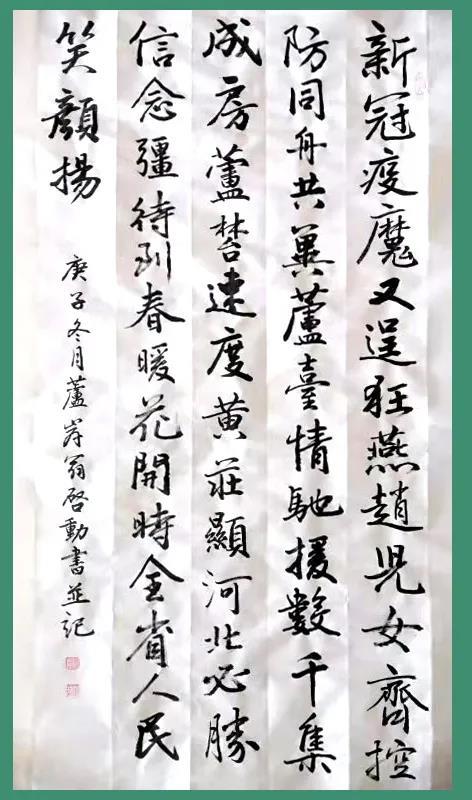 新冠疫魔又逞狂燕趙兒女齊控
防同舟共冀蘆臺情馳援數千集
成房蘆速度黄莊顯河北必勝
信念彊待到春暖花開時全省人民
笑顏揚
庚子冬月蘆翁啓動書並記